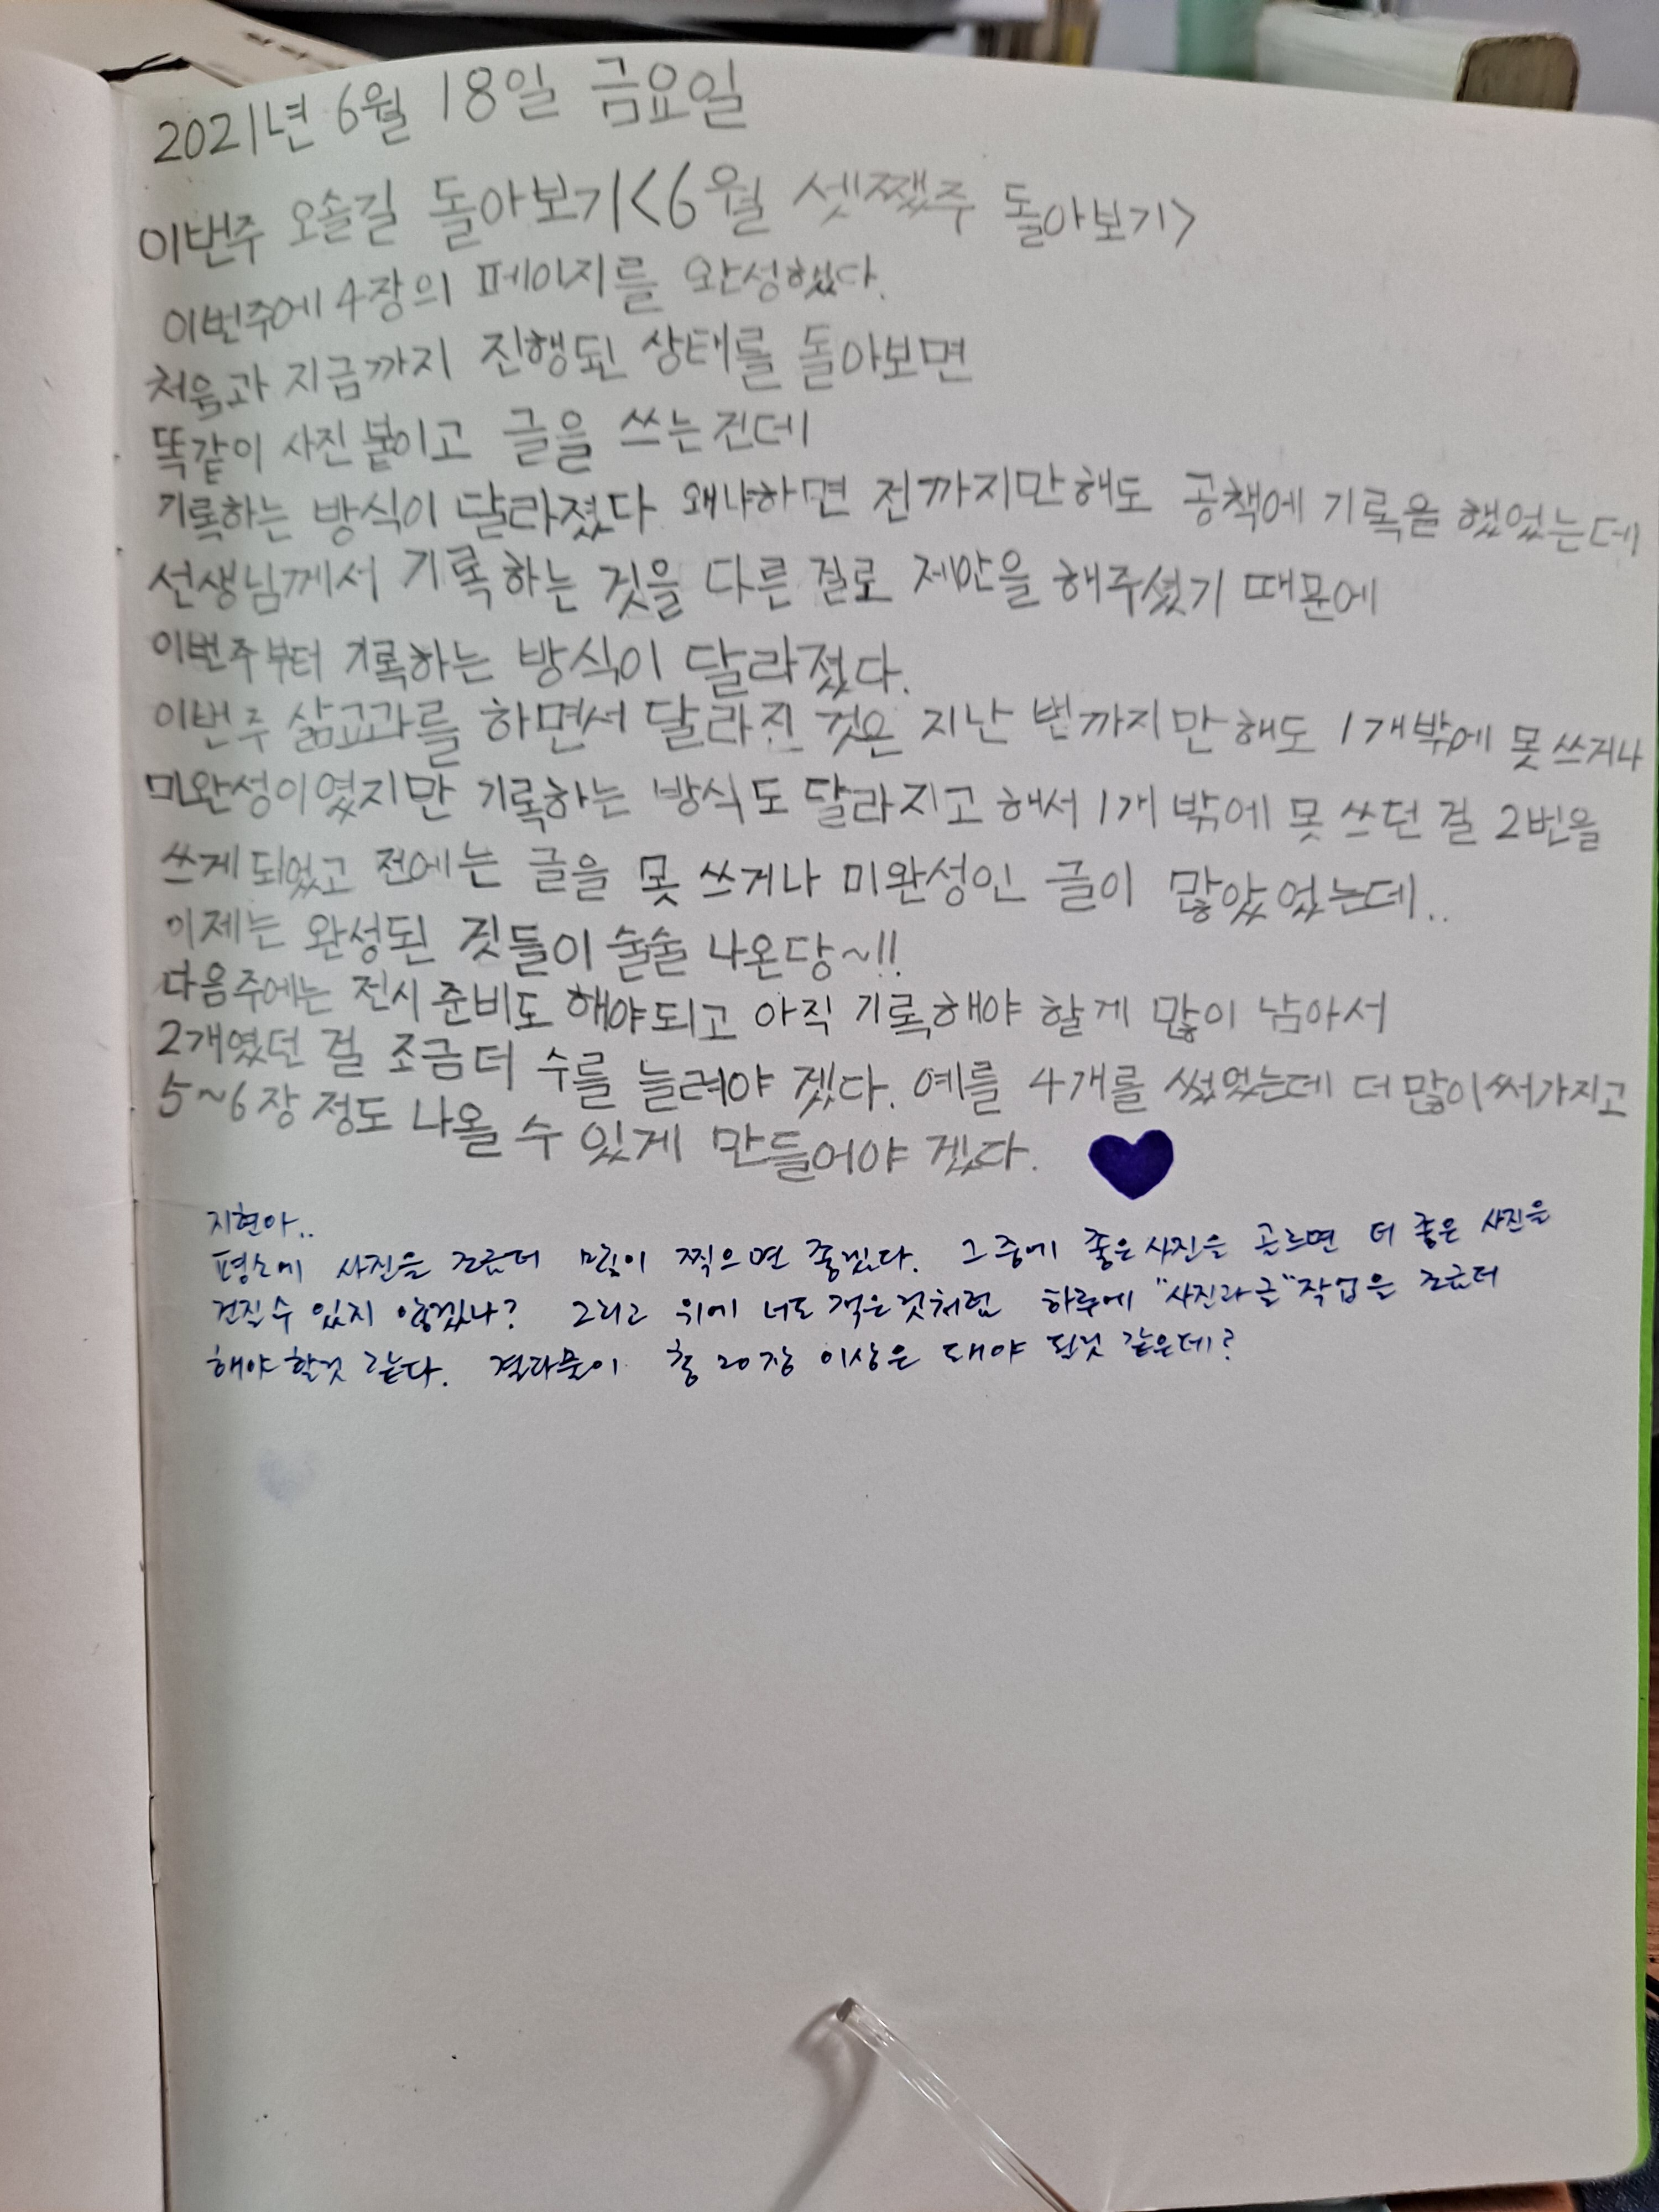 2021년 6월 18일 금요일
이번주 오솔길 돌아보기<6월 셋쨌주 돌아보기>
이번주에 4장의 페이지를 완성했다.
처음과 지금까지 진행된 상태를 돌아보면
똑같이 사진 붙이고 글을 쓰는건데
기록하는 방식이 달라졌다 왜냐하면 전까지만해도 공책에 기록을 했었는데
선생님께서 기록하는 것을 다른 걸로 제안을 해주셨기 때문에
이번주부터 기록하는 방식이 달라졌다.
이번주 삶교과를 하면서 달라진 것은 지난 번까지만해도 1개밖에 못 쓰거나
미완성이였지만 기록하는 방식도 달라지고 해서 1개 밖에 못 쓰던 걸 2번을
쓰게 되었고 전에는 글을 못 쓰거나 미완성인 글이 많았었는데..
이제는 완성된 것들이 술술 나온당~!!
다음주에는 전시 준비도 해야되고 아직 기록해야 할게 많이 남아서
2개였던 걸 조금더 수를 늘려야 겠다. 예를 4개를 썼었는데 더 많이 써가지고
5~6장 정도 나올 수 있게 만들어야 겠다.
지현아..
평소에 사진을 조금더 많이 찍으면 좋겠다. 그 중에 좋은사진을 고르면 더 좋은 사진을
건질수 있지 않겠나? 그리고 위에 너도 적은것처럼 하루에 "사진과글"작업은 조금더
해야 할것 같다. 결과물이 총 20장 이상은 돼야 될것 같은데?